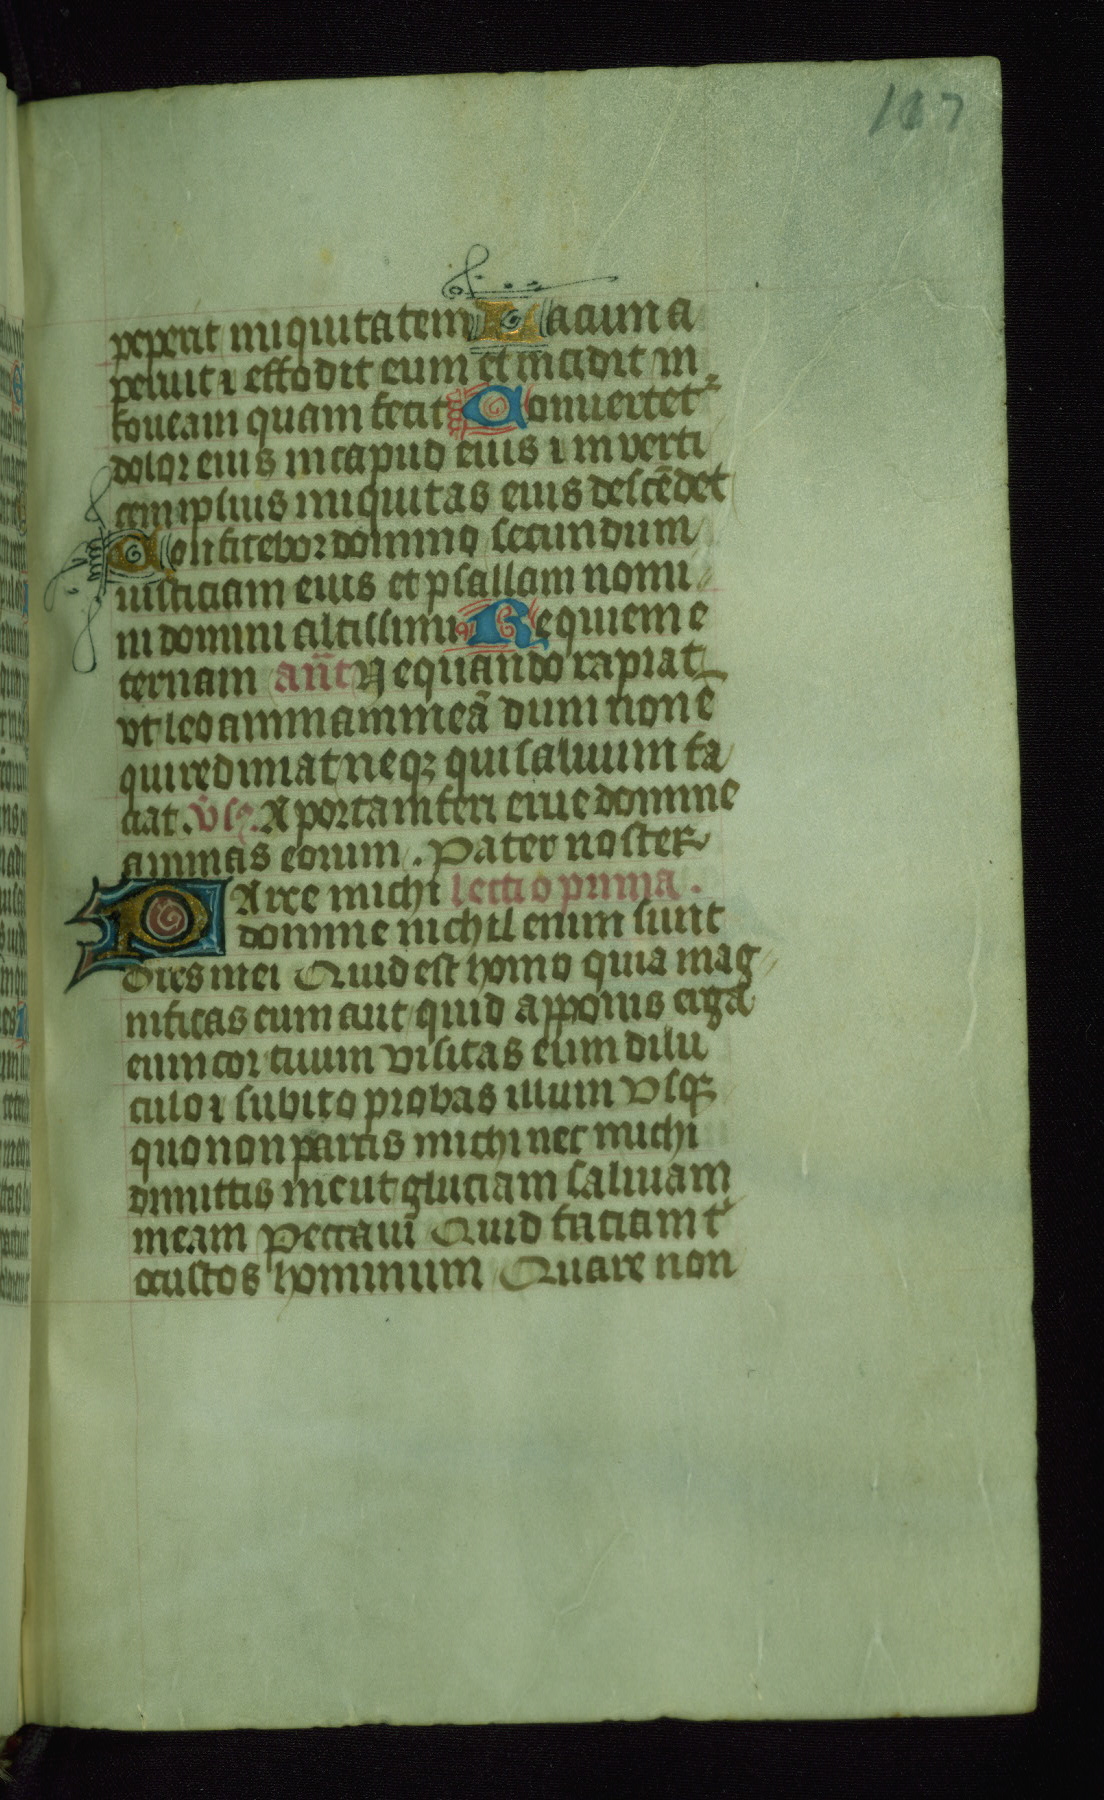 107
peperit iniquitatem Lacum a
peruit ⁊ effodit eum et incidit in
foveam quam fecit Convertet᷑
dolor eius in capud eius ⁊ in verti
cem ipsius iniquitas eius descēdet
Confitebor domino secundum
iusticiam eius et psallam nomi
ni domini altissimi Requiem e
ternam añt Nequando rapiat
vt leo animam meā dum non ē
qui redimat neqꝫ qui saluum fa
ciat. v̄sꝫ. A porta inferi erue domine
animas eorum. Pater noster
PArce michi lectio prima.
domine nichil enim sunt
dies mei Quid est homo quia mag
nificas eum aut quid apponis erga
eum cor tuum visitas eum dilu
culo ⁊ subito probas illum Vsqꝫ
quo non parcis michi nec michi
dimittis ineut gluciam salivam
meam Peccaui Quid faciam t᷑
o custos hominum Quare non